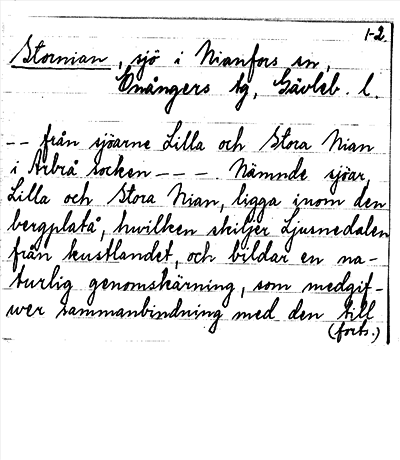 1-2.
Stornian, sjö i Nianfors sn,
Enångers tg, Gävleb. l.
-- från sjöarne Lilla och Stora Nian
i Arbrå socken - - -. Nämnde sjöar,
Lilla och Stora Nian, ligga inom den
bergplatå, hvilken skiljer Ljusnedalen
från kustlandet, och bildar en na-
turlig genomskärning, som medgif-
wer sammanbindning med den till
(forts.)